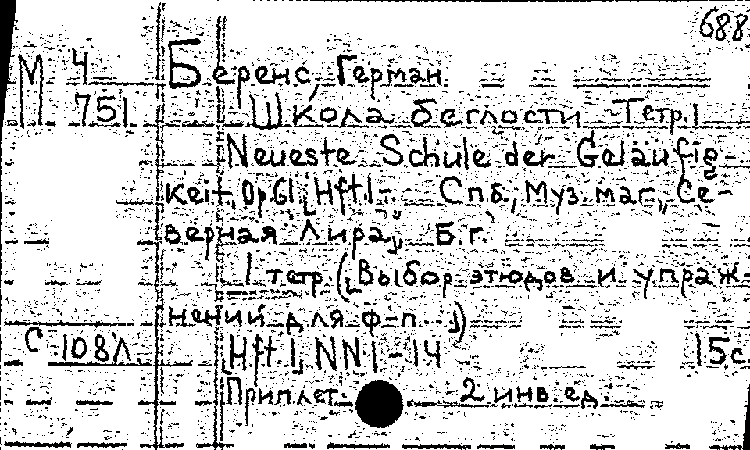 688
М 4 Беренс, Герман.
751 Школа беглости. Тетр. 1
Neueste Schule der Geläufig-
keit, Op. 61, Hft 1.- Спб., Муз. маг. „Се-
верная Лира", Б.г.
1 тетр. (Выбор этюдов и упраж-
нений для ф-п...)
С 108Л [Hft 1, NN 1-14 15с
Приплет. 2 инв. ед.